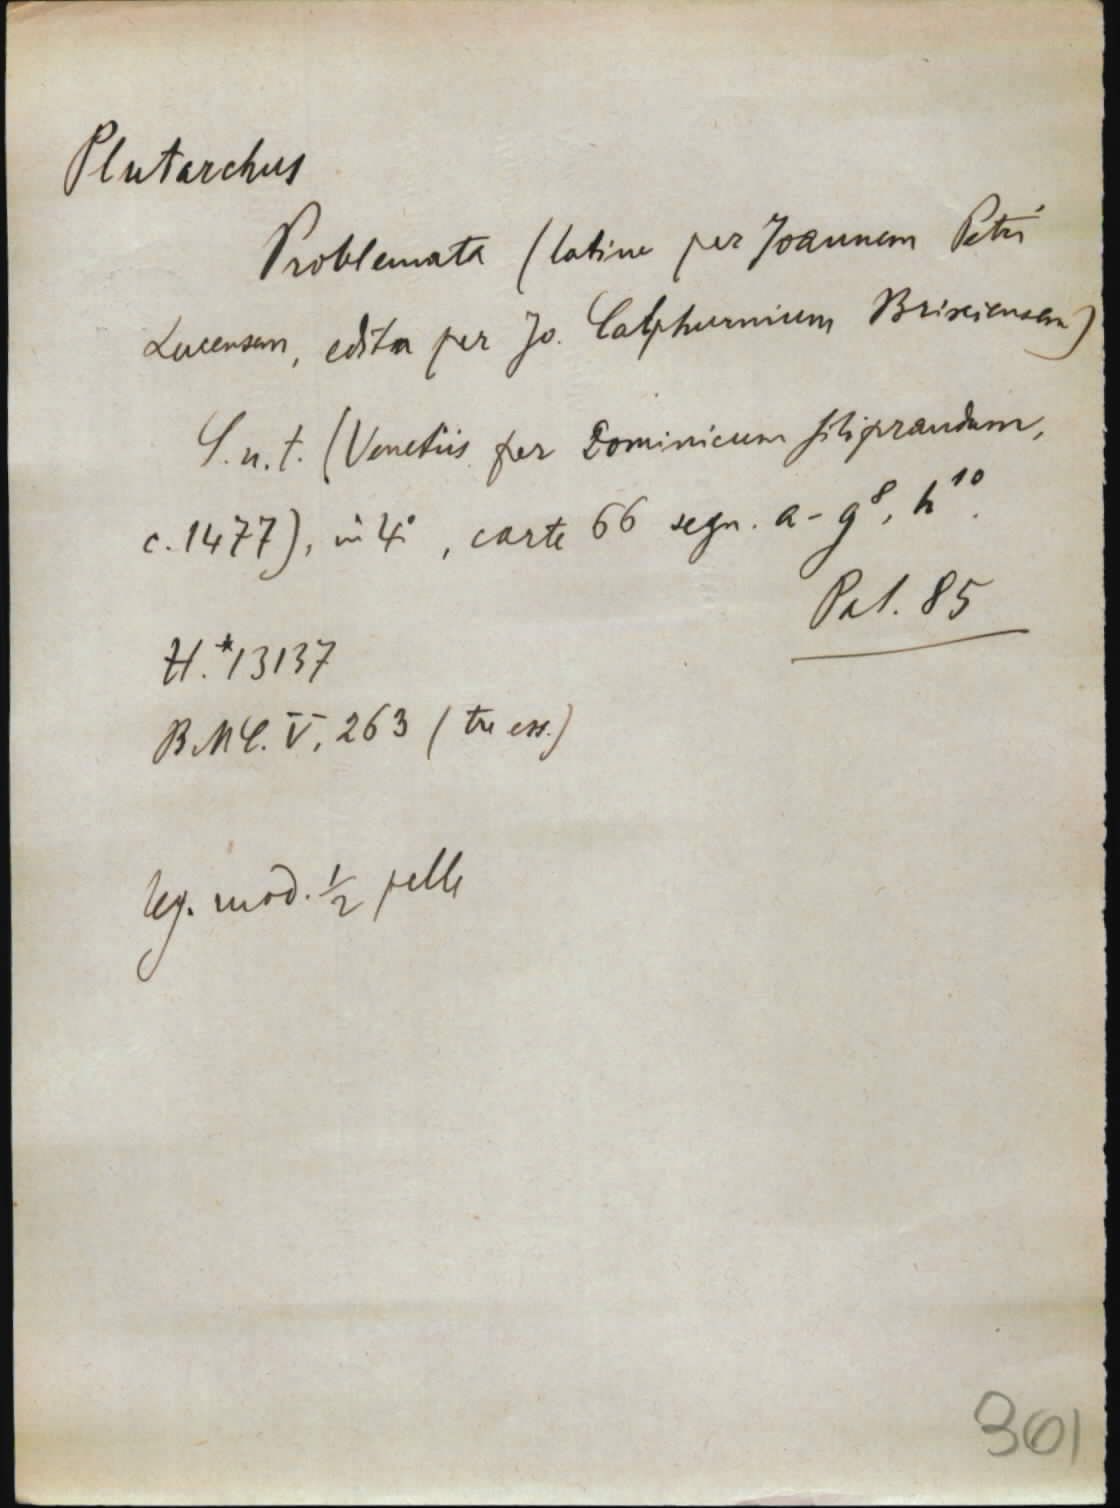 Plutarchus
Problemata (latine per Joannem Petri
Lucensem, edita per Jo. Calphurnium Brixiensem)
S.n.t. (Venetiis per Dominicum Siliprandum,
c. 1477), in 4°, carte 66 segn. a-g⁸, h¹⁰.
Pal. 85
H.*13137
B.M.C. V, 263 (tre ess.)
leg. mod. ½ pelle
301